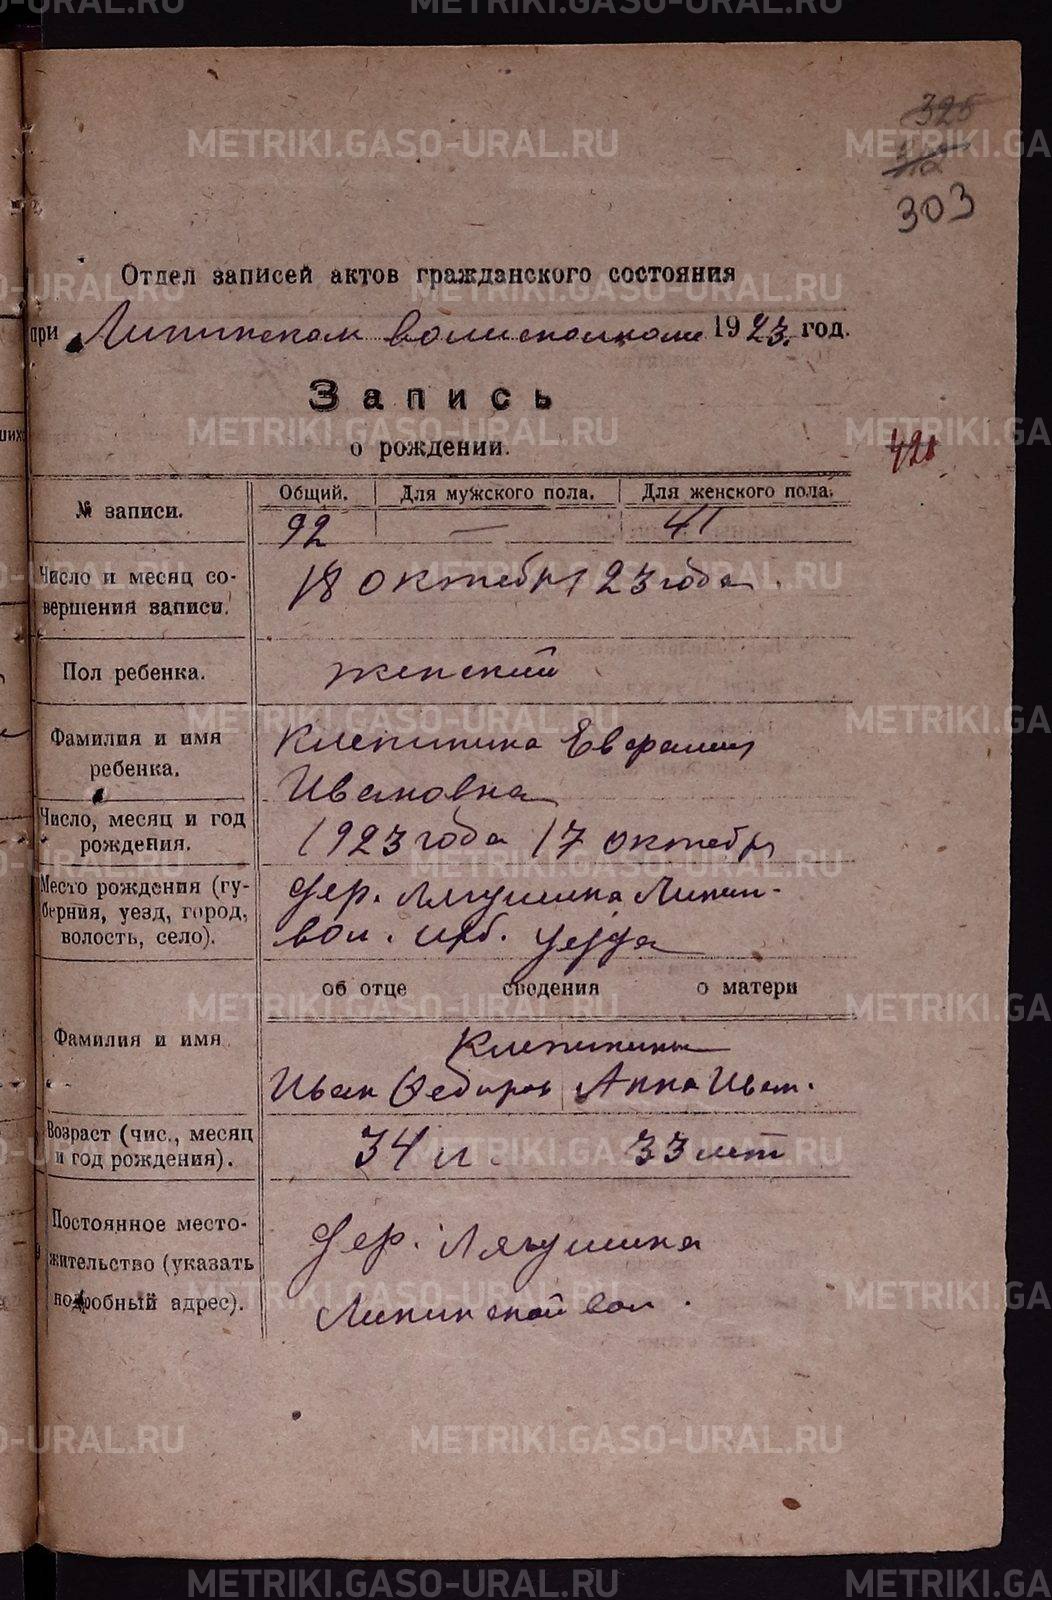 METRIKI.GASO-URAL.RU
325
303
Отдел записей актов гражданского состояния
при Липинском волисполкоме 1923. год.
Запись
о рождении.
№ записи.
Общий. Для мужского пола. Для женского пола.
92 — 41
Число и месяц со-
вершения записи.
18 октября 23 года.
Пол ребенка.
женский
Фамилия и имя
ребенка.
Клепинина
Ивановна
Число, месяц и год
рождения.
1923 года 17 октября
Место рождения (гу-
берния, уезд, город,
волость, село).
дер. Лягушина Липин-
вол. ирб. уезда
об отце сведения о матери
Фамилия и имя
Клепинины
Иван Федоров Анна Иван.
Возраст (чис., месяц
и год рождения).
34 л. 33 лет
Постоянное место-
жительство (указать
подробный адрес).
дер. Лягушина
Липинской вол.